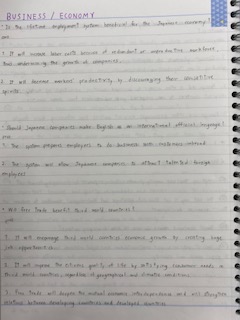 BUSINESS / ECONOMY
Is the lifetime employment system beneficial for the Japanese economy?
1. It will increase labor costs because of redundant or unproductive workforce
that undermining the growth of companies.
2. It will decrease workers' productivity by discouraging their competitive
spirits.
Should Japanese companies make English an international official language?
1. The system prepares employees to do business with
2. The system will allow Japanese companies to attract talented foreign
employees.
Will Free Trade benefit third world countries?
1. It will encourage third world countries' economic growth by creating huge
job opportunities.
2. It will improve the citizens' quality of life by satisfying consumers' needs in
third world countries, regardless of geographical and climatic conditions.
3. Free Trade will deepen the mutual economic interdependence and will strengthen
relations between developing countries and developed countries.